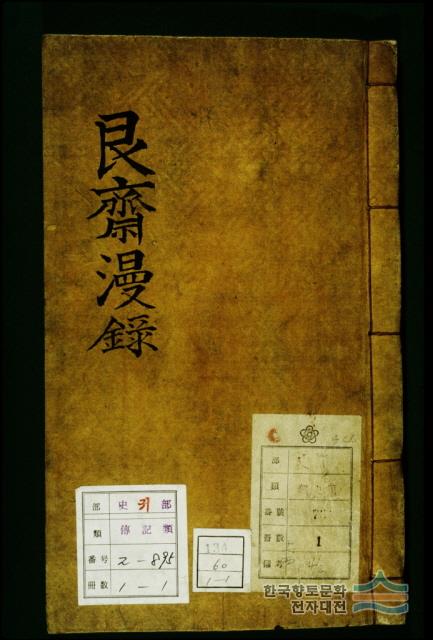 艮齋漫錄
部 史 部
類 傳記類
番号 2-895
冊數 1-1
60
1-1
部
類
號數
冊數 1
備考
한국향토문화
전자대전